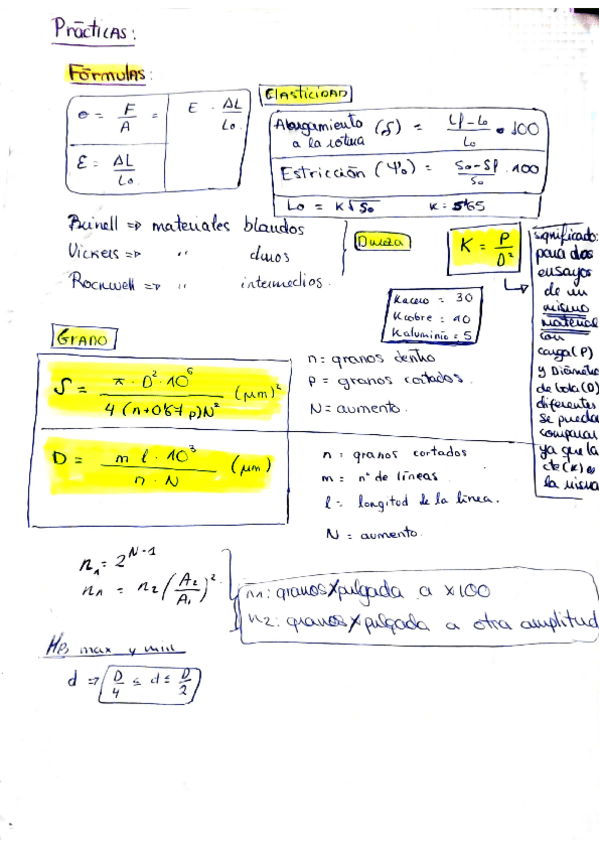 Prácticas:
Fórmulas:
σ = F/A = E · ΔL/Lo
ε = ΔL/Lo
Elasticidad
Alargamiento a la rotura (δ) = Lf-Lo/Lo · 100
Estricción (Ψo) = So-Sf/So · 100
Lo = K√So K = 5'65
Brinell => materiales blandos
Vickers => " duros
Rockwell => " intermedios.
Dureza
K = P/D²
Kacero = 30
Kcobre = 10
Kaluminio = 5
significado:
para dos
ensayos
de un
mismo
material
con
carga (P)
y Diámetro
de bola (D)
diferentes
se pueda
comparar
ya que la
cte (K) es
la misma
Grano
S = π · D² · 10⁶ / 4 (n+0'67 p)N² (μm)²
n: granos dentro
p = granos cortados.
N = aumento.
D = m l · 10³ / n · N (μm)
n: granos cortados
m = nº de líneas.
l = longitud de la línea.
N = aumento.
n₁ = 2^(N-1)
n₁ = n₂ (A₂/A₁)²
n₁: granos x pulgada a x100
n₂: granos x pulgada a otra amplitud
max y min
d => D/4 ≤ d ≤ D/2